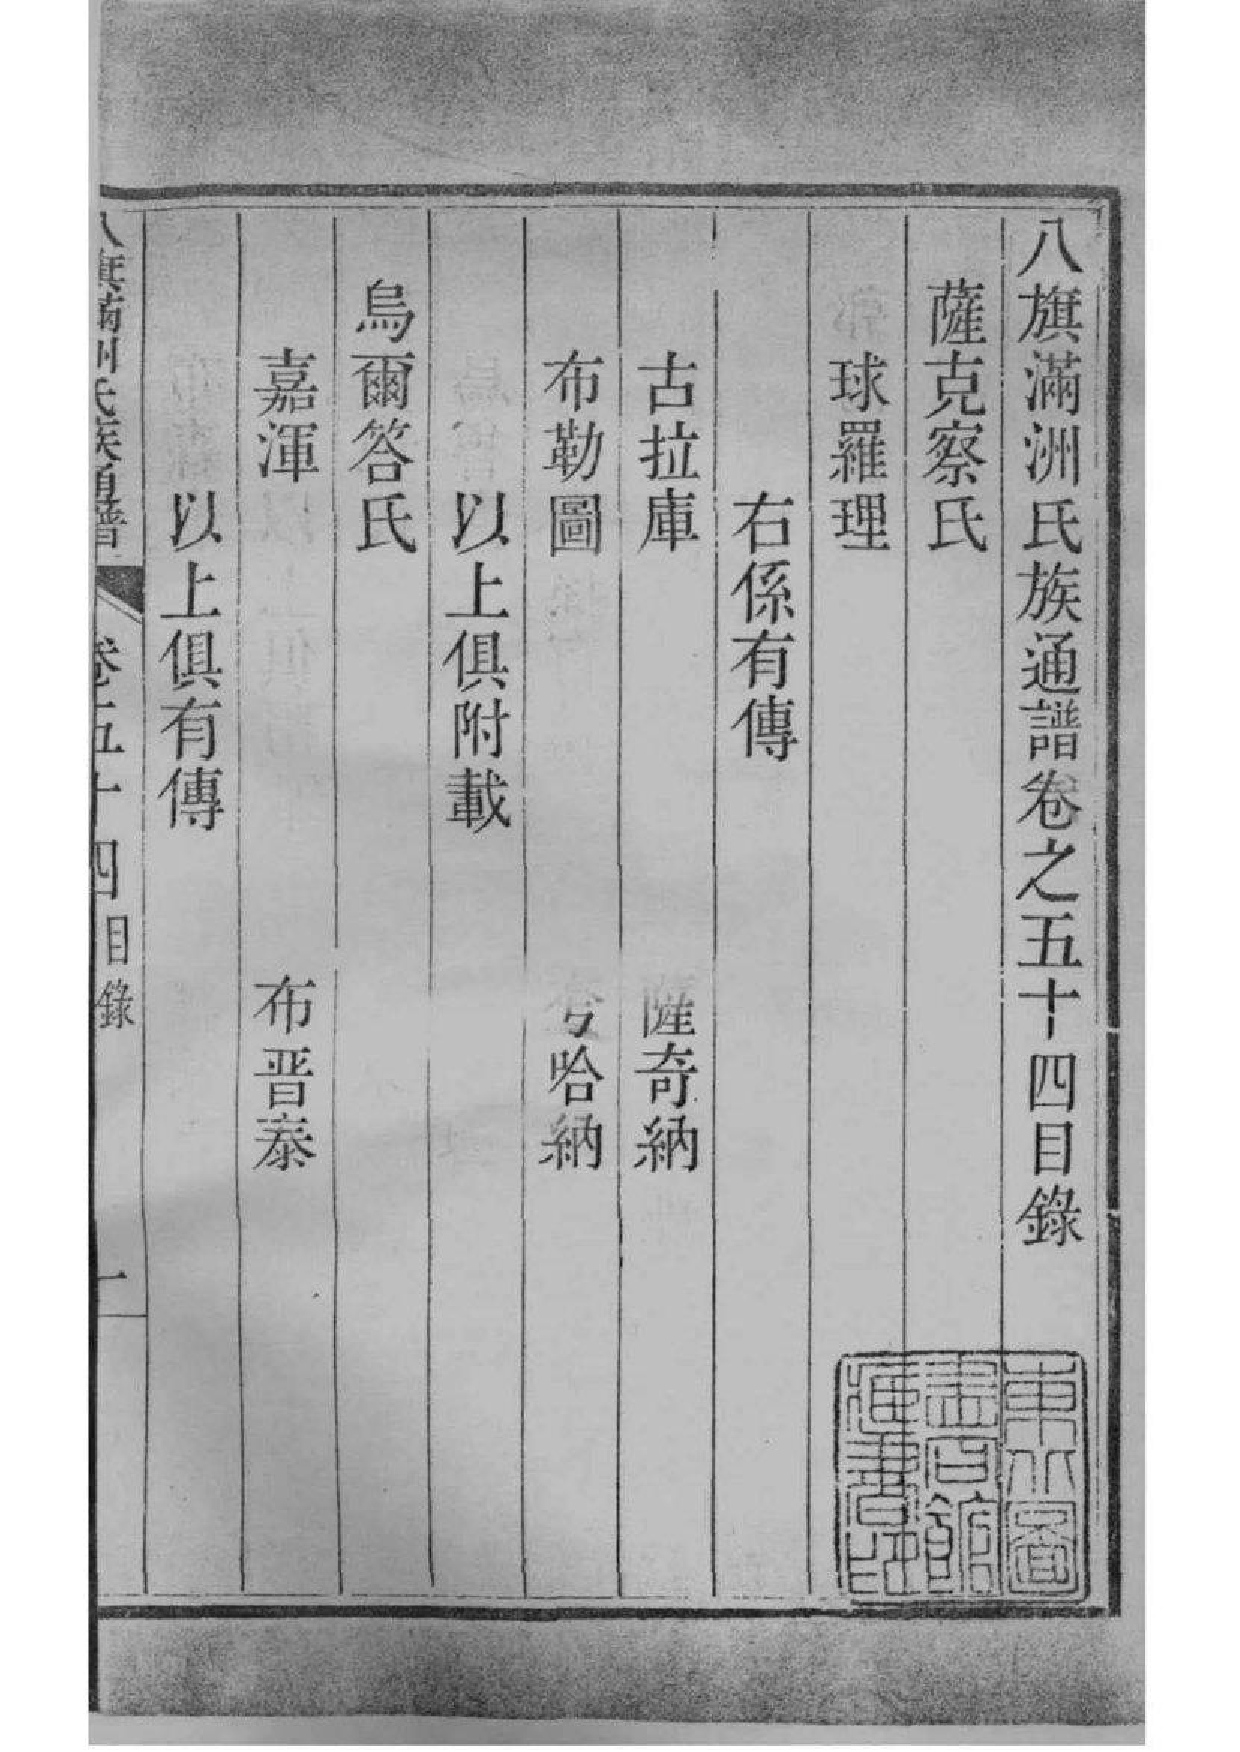 八旗滿洲氏族通譜卷之五十四目錄
薩克察氏
球羅理
右係有傳
古拉庫 薩奇納
布勒圖 哈納
以上俱附載
烏爾答氏
嘉渾 布晋泰
以上俱有傳
八旗滿洲氏族通譜 卷五十四目錄 一
東北圖書館藏書印